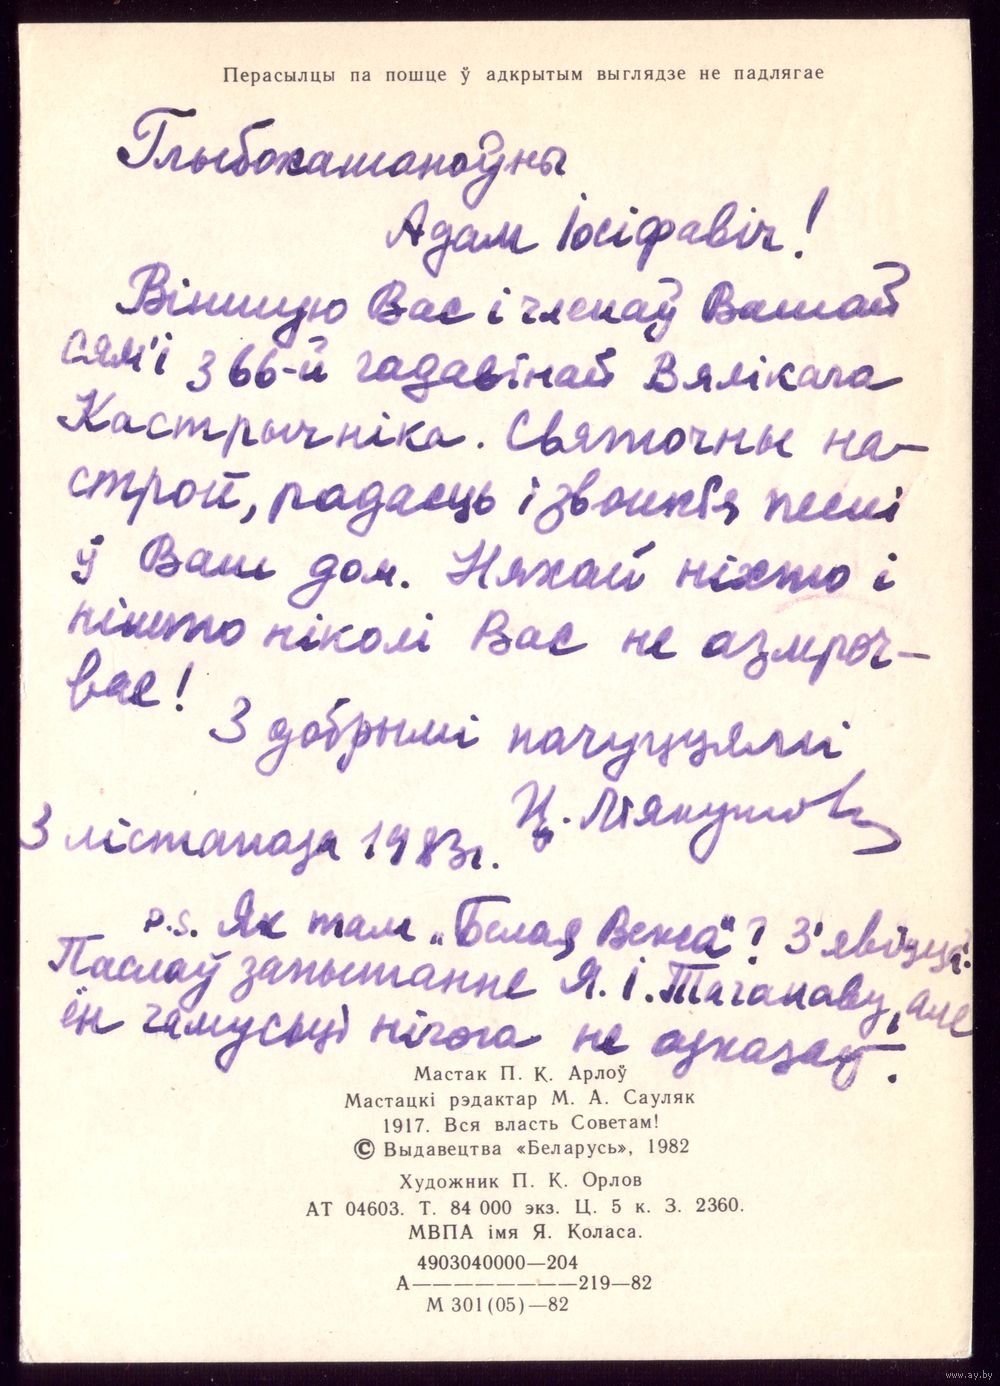 Перасылцы па пошце ў адкрытым выглядзе не падлягае
Глыбокашаноўны
Адам Іосіфавіч!
Віншую Вас і членаў Вашай
сям'і з 66-й гадавінай Вялікага
Кастрычніка. Святочны на-
строй, радасць і звонкія песні
ў Ваш дом. Няхай ніхто і
нішто ніколі Вас не азмроч-
вае!
З добрымі пачуццямі
3 лістапада 1983 г.
P.S. Як там „Белая Вежа"? З'явіцца?
Паслаў запытанне Я. І. , але
ён чамусьці нічога не адказаў.
Мастак П. К. Арлоў
Мастацкі рэдактар М. А. Сауляк
1917. Вся власть Советам!
© Выдавецтва «Беларусь», 1982
Художник П. К. Орлов
АТ 04603. Т. 84 000 экз. Ц. 5 к. З. 2360.
МВПА імя Я. Коласа.
4903040000—204
А————————219—82
М 301(05)—82
www.ay.by